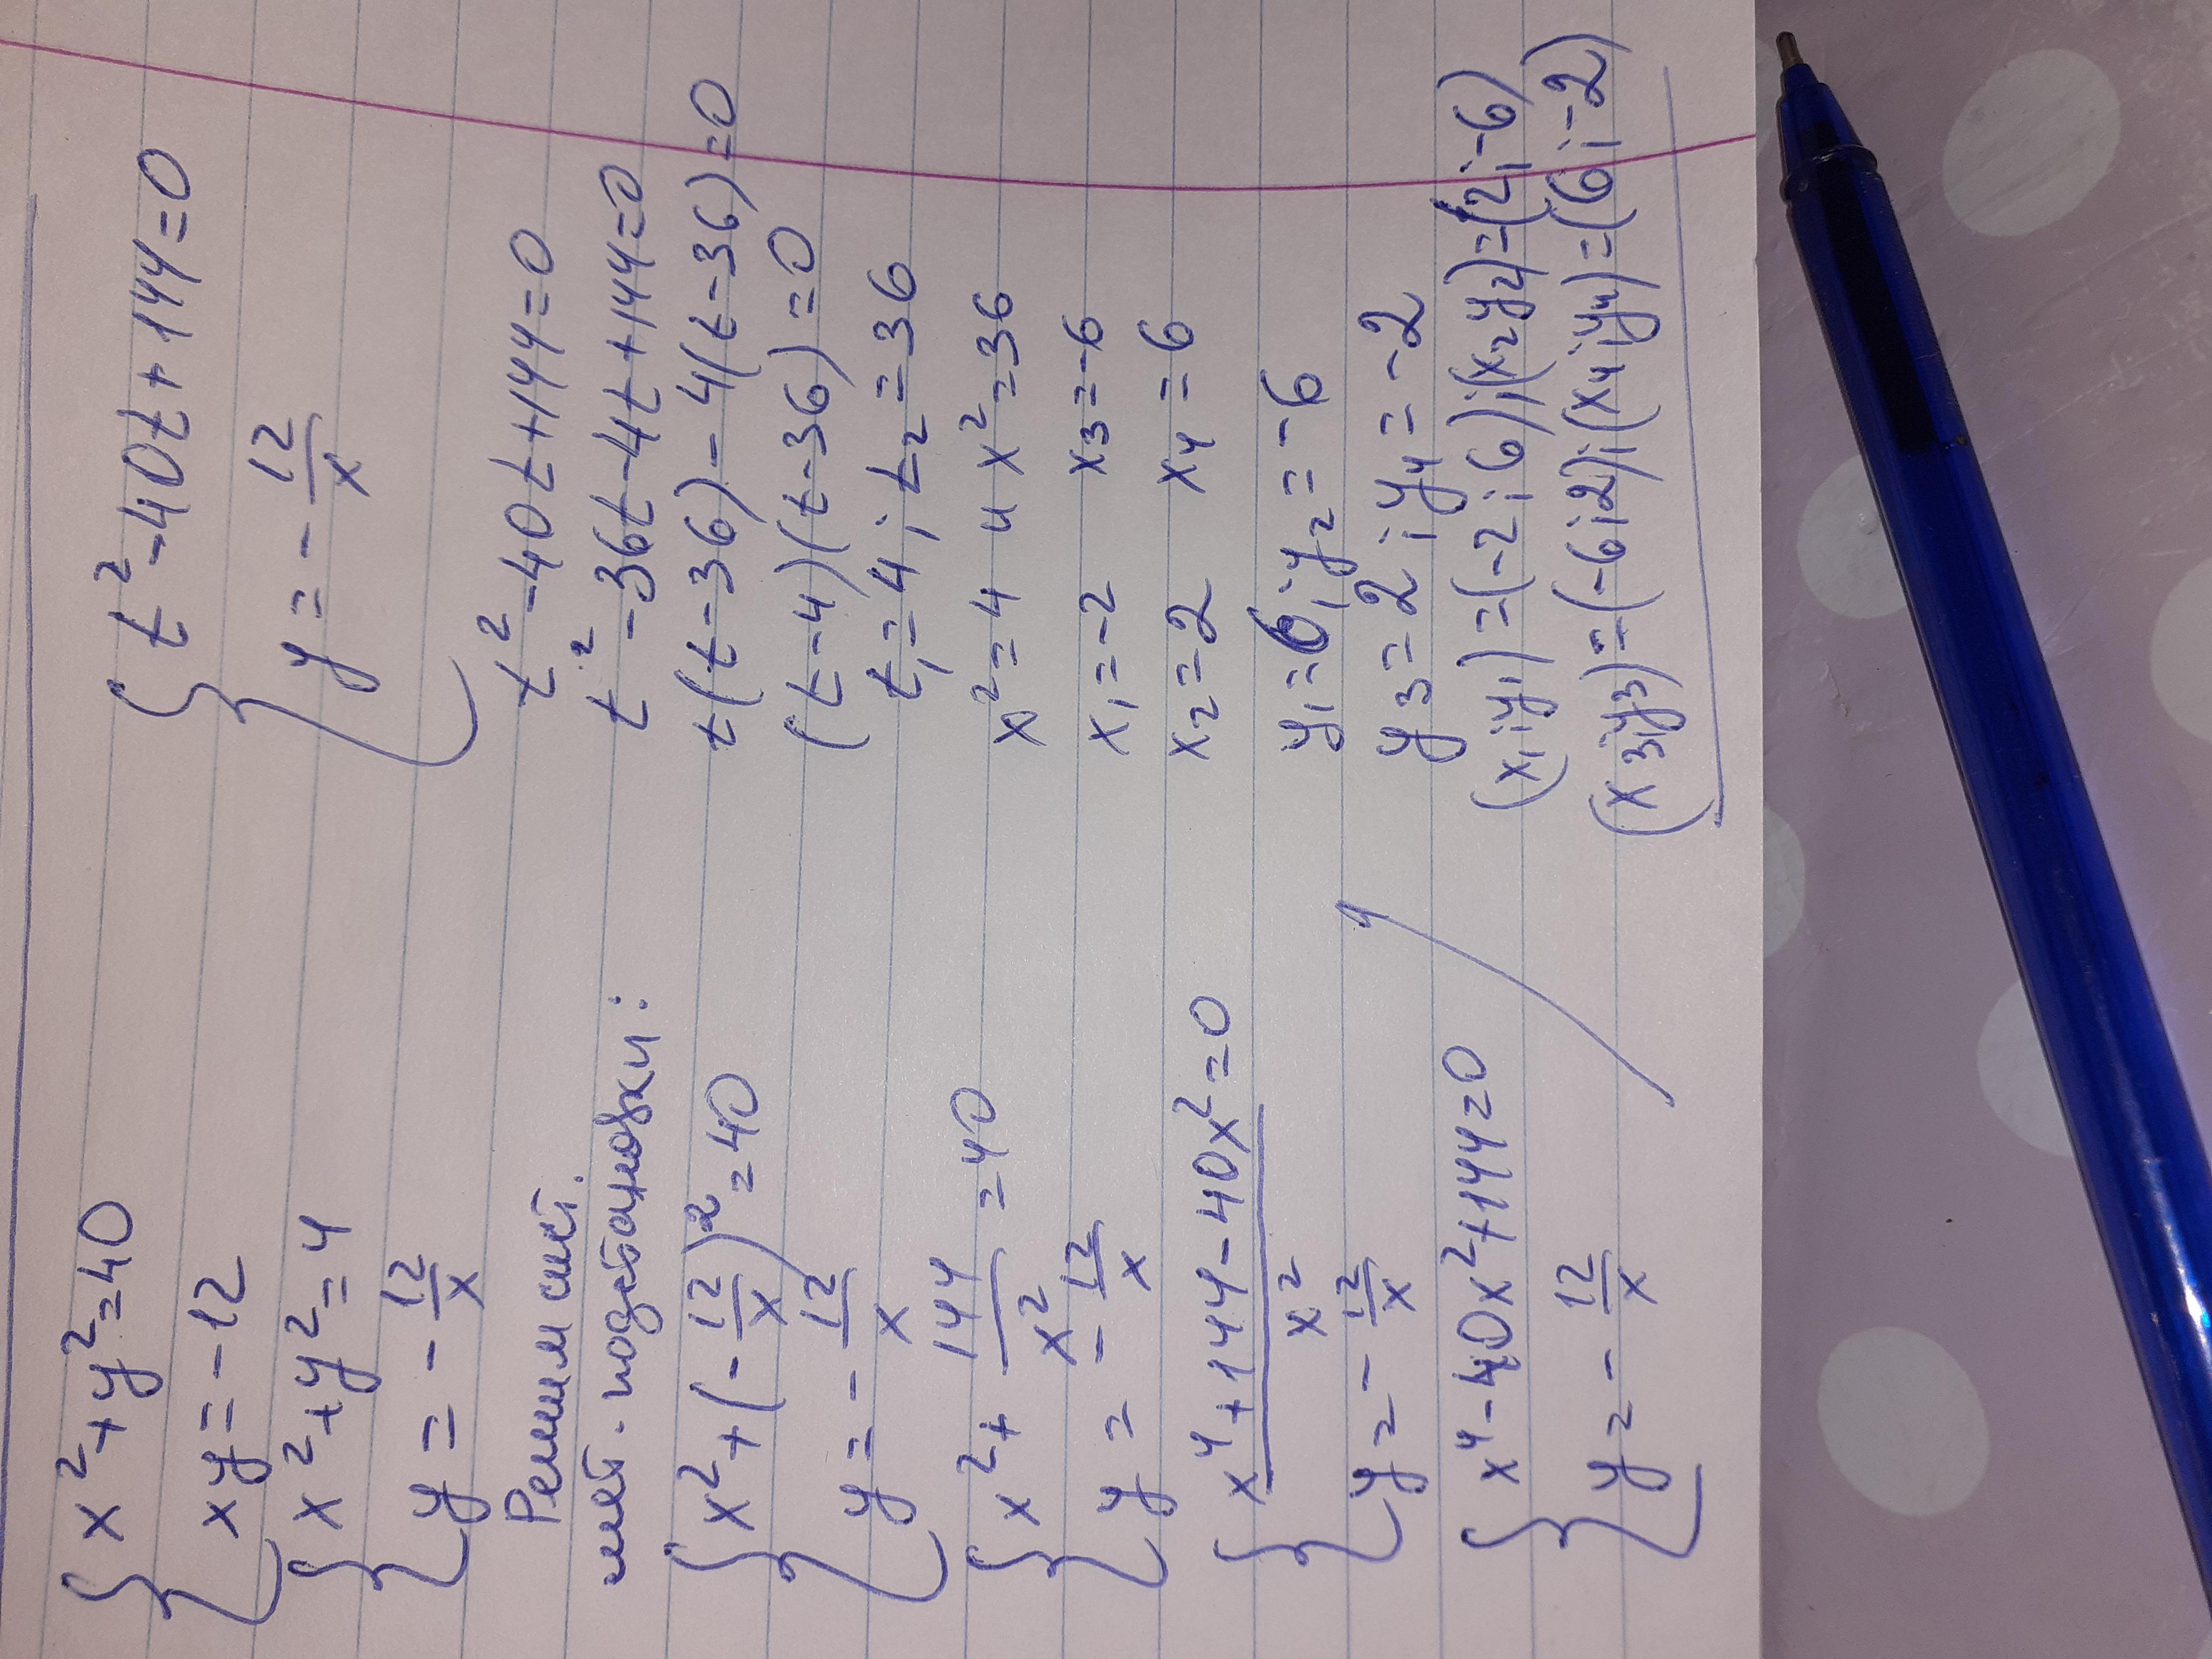 { x² + y² = 40
xy = -12
{ x² + y² = 4
y = - 12/x
Решим сист.
мет. подстановки:
{ x² + (- 12/x)² = 40
y = - 12/x
{ x² + 144/x² = 40
y = - 12/x
{ x⁴ + 144 - 40x² / x² = 0
y = - 12/x
{ x⁴ - 40x² + 144 = 0
y = - 12/x
{ t² - 40t + 144 = 0
y = - 12/x
t² - 40t + 144 = 0
t² - 36t - 4t + 144 = 0
t(t - 36) - 4(t - 36) = 0
(t - 4)(t - 36) = 0
t₁ = 4; t₂ = 36
x² = 4 и x² = 36
x₁ = -2 x₃ = -6
x₂ = 2 x₄ = 6
y₁ = 6; y₂ = -6
y₃ = 2; y₄ = -2
(x₁; y₁) = (-2; 6); (x₂ y₂) = (2; -6)
(x₃; y₃) = (-6; 2); (x₄; y₄) = (6; -2)